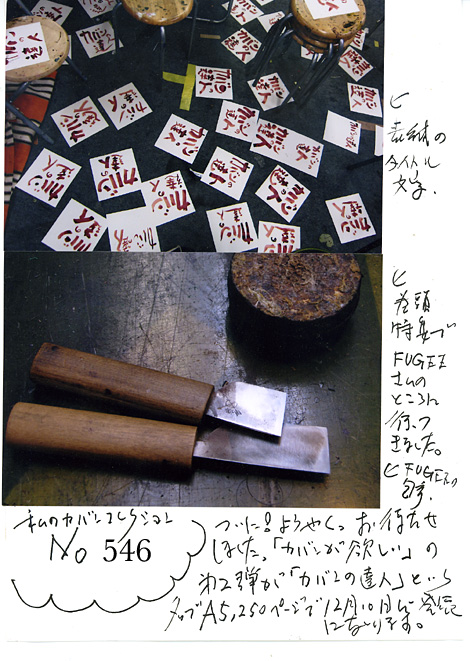 カバンの達人
ヒ
表紙の
タイトル
文字.
ヒ
巻頭
特集で
FUGEE
さんの
ところへ
行って
きました。
ヒ FUGEEの
包丁.
私のカバンコレクション
No 546
ついに!ようやく。お待たせ
しました。「カバンが欲しい」の
第2弾が「カバンの達人」という
タイプA5,250ページで12月10日に発売
になります。